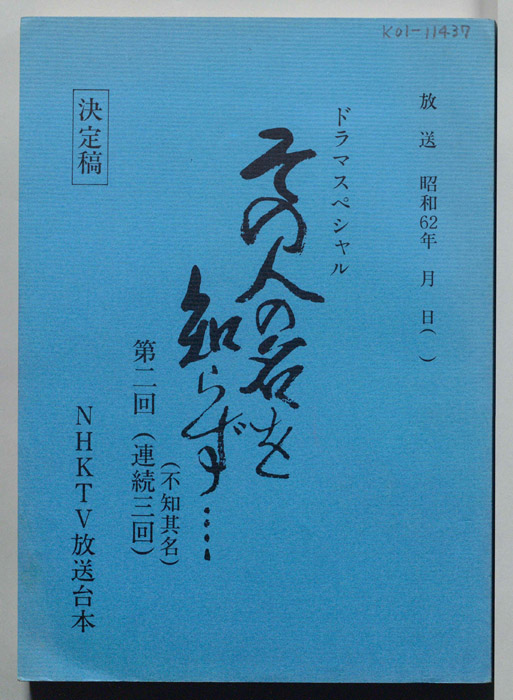 K01-11437
放送 昭和62年 月 日( )
ドラマスペシャル
その人の名を
知らず‥‥
(不知其名)
第二回(連続三回)
NHKTV放送台本
決定稿